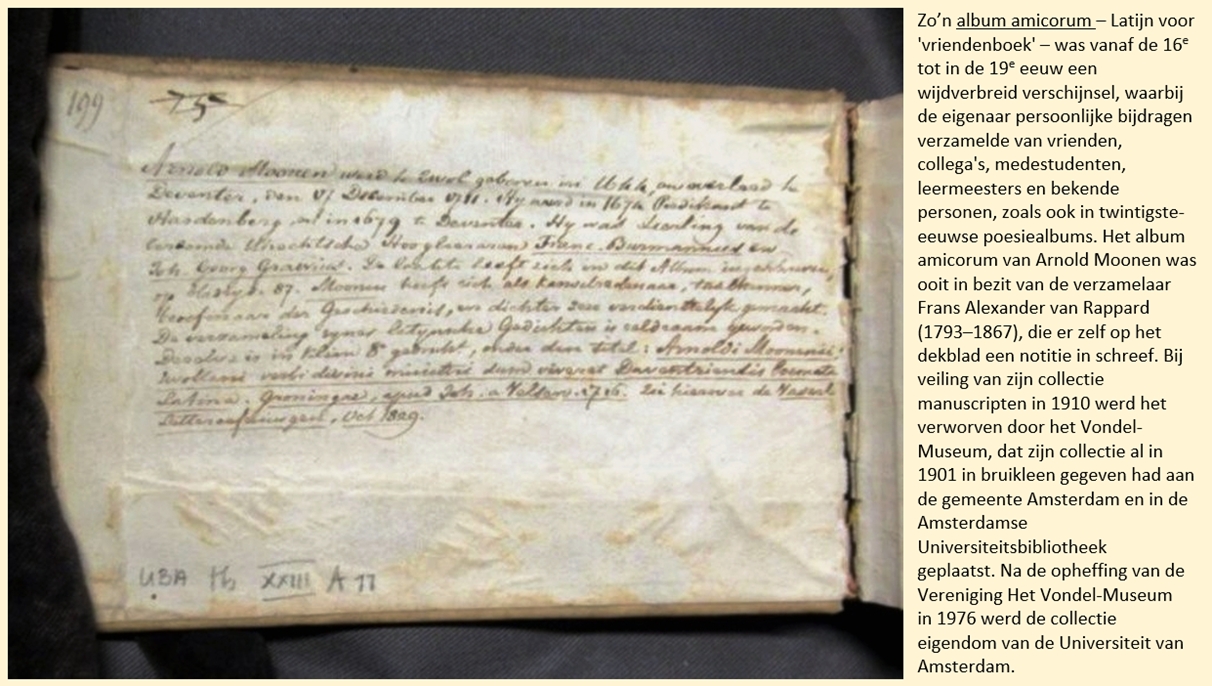 199
75
Arnold Moonen werd te Zwol geboren in 1644, en overleed te
Deventer, den 17 December 1711. Hy werd in 1674 Predikant te
Hardenberg en in 1679 te Deventer. Hy was Leerling van de
beroemde Utrechtsche Hoogleeraren Franc. Burmannus en
Joh. Georg Graevius. De laatste heeft zich in dit Album ingeschreven,
op bladz. 87. Moonen heeft zich als kanselredenaar, taalkenner,
beoefenaar der Geschiedenis, en dichter zeer verdienstelyk gemaakt.
De verzameling zyner latynsche Gedichten is zeldzaam geworden.
Dezelve is in klein 8° gedrukt, onder den titel: Arnoldi Moonenii
verbi divini ministri dum viveret Daventriensis Poemata
Latina. Groningae, apud Joh. a Velsen. 1716. Zie hierover de Vaderl
Letteroefeningen, Oct 1829.
UBA Hs XXIII A 11
Zo’n album amicorum – Latijn voor
'vriendenboek' – was vanaf de 16e
tot in de 19e eeuw een
wijdverbreid verschijnsel, waarbij
de eigenaar persoonlijke bijdragen
verzamelde van vrienden,
collega's, medestudenten,
leermeesters en bekende
personen, zoals ook in twintigste-
eeuwse poesiealbums. Het album
amicorum van Arnold Moonen was
ooit in bezit van de verzamelaar
Frans Alexander van Rappard
(1793–1867), die er zelf op het
dekblad een notitie in schreef. Bij
veiling van zijn collectie
manuscripten in 1910 werd het
verworven door het Vondel-
Museum, dat zijn collectie al in
1901 in bruikleen gegeven had aan
de gemeente Amsterdam en in de
Amsterdamse
Universiteitsbibliotheek
geplaatst. Na de opheffing van de
Vereniging Het Vondel-Museum
in 1976 werd de collectie
eigendom van de Universiteit van
Amsterdam.